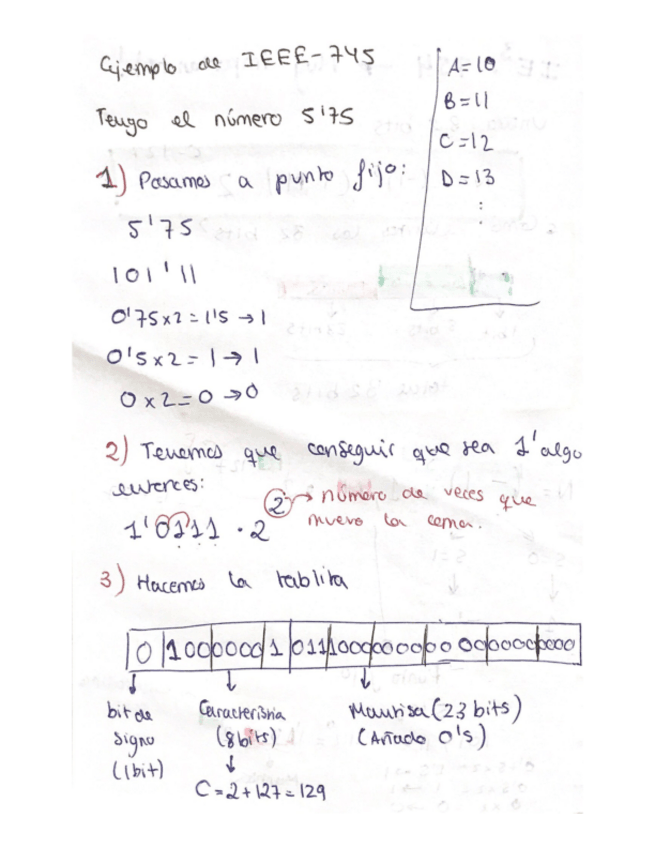 Ejemplo de IEEE-745
Tengo el número 5'75
1) Pasamos a punto fijo:
5'75
101'11
0'75x2=1'5→1
0'5x2=1→1
0x2=0→0
A=10
B=11
C=12
D=13
:
2) Tenemos que conseguir que sea 1'algo
entonces:
1'0111·2² → número de veces que
muevo la coma.
3) Hacemos la tablita
0 | 100 | 0000 | 1 | 011 | 1000
bit de signo (1bit)
Caracteristia (8bits)
C=2+127=129
Mantisa (23 bits)
(Añado 0's)